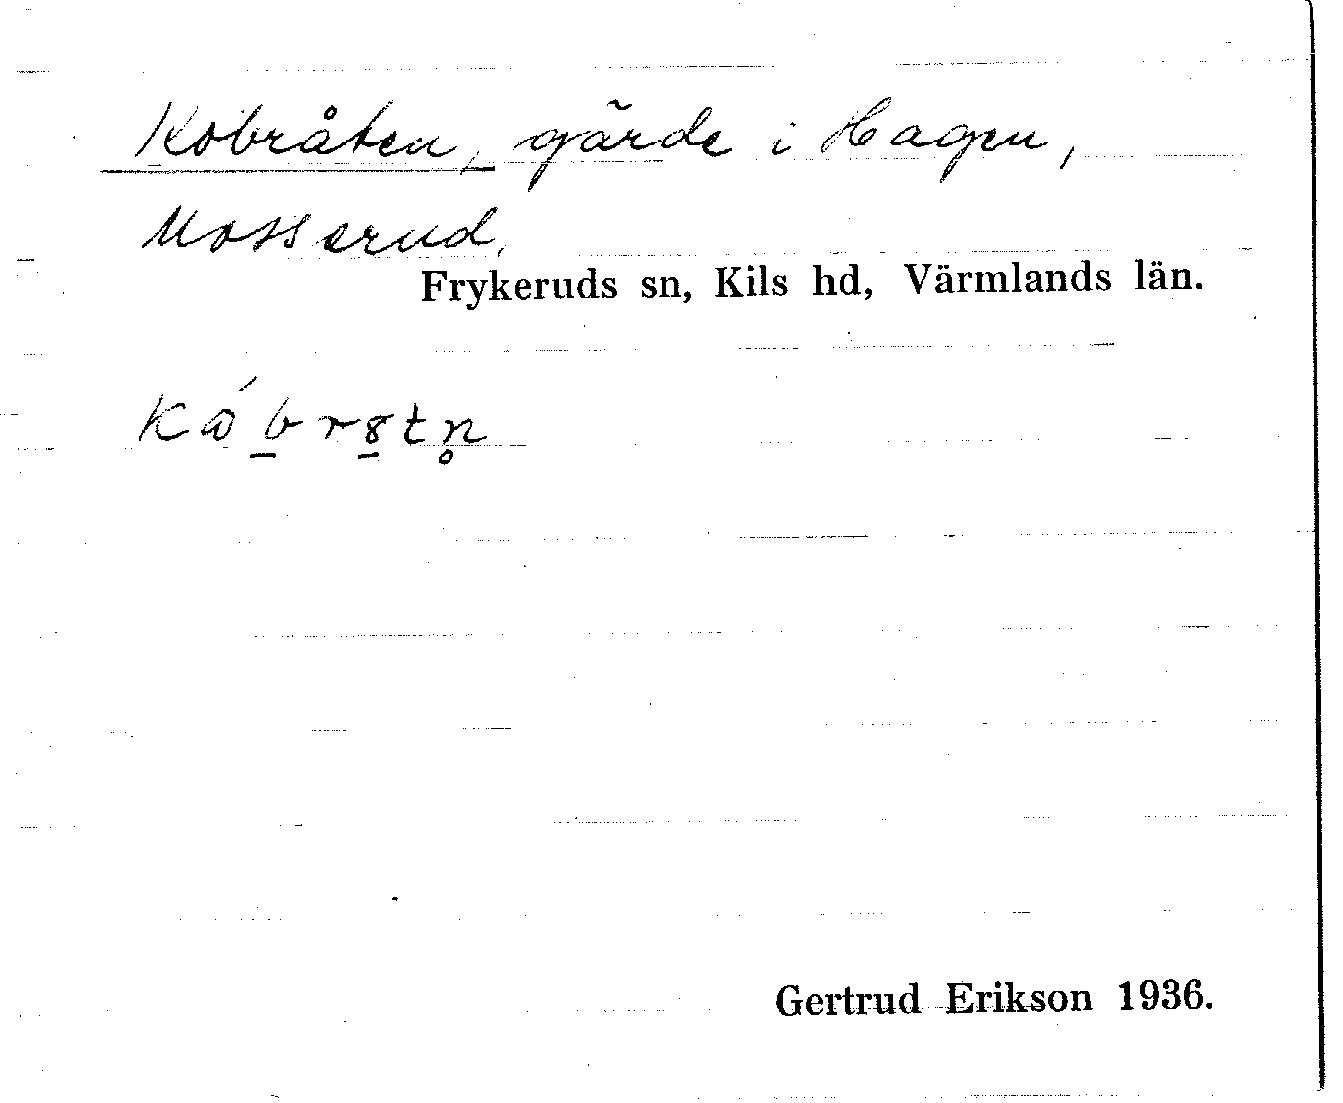 Kobråten, gärde i Hagen,
Mosserud,
Frykeruds sn, Kils hd, Värmlands län.
Gertrud Erikson 1936.